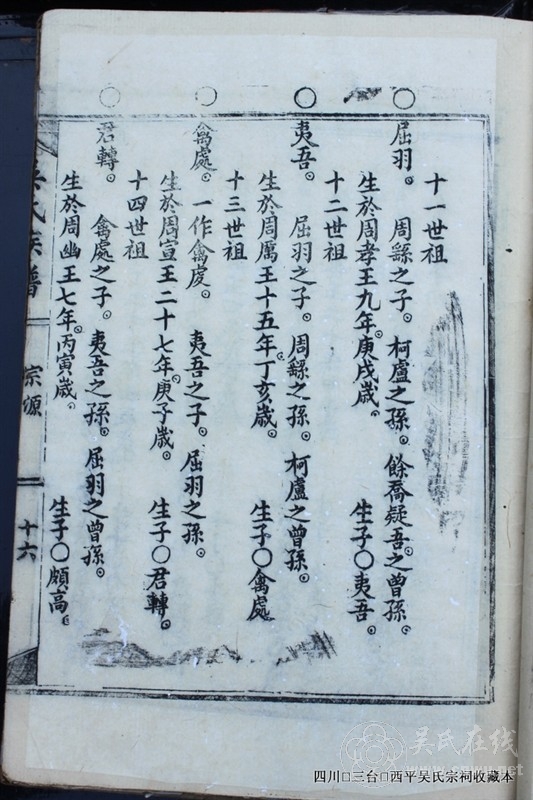 十一世祖
○屈羽。 周繇之子。柯盧之孫。餘喬疑吾。之曾孫。
生於周孝王九年。庚戌歲。 生子○夷吾。
十二世祖
○夷吾。 屈羽之子。周繇之孫。柯盧之曾孫。
生於周厲王十五年。丁亥歲。 生子○禽處
十三世祖
○禽處。一作禽處。 夷吾之子。屈羽之孫。
生於周宣王二十七年。庚子歲。 生子○君轉。
十四世祖
○君轉。 禽處之子。夷吾之孫。屈羽之曾孫。
生於周幽王七年。丙寅歲。 生子○頗高。
吳氏族譜 宗源 十六
吴氏在线
cnwu.net
四川□三台□西平吴氏宗祠收藏本